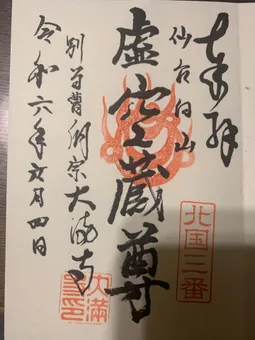 奉拝
北国三番
仙台向山
虚空蔵尊
別當曹洞宗大満寺
令和六年五月四日